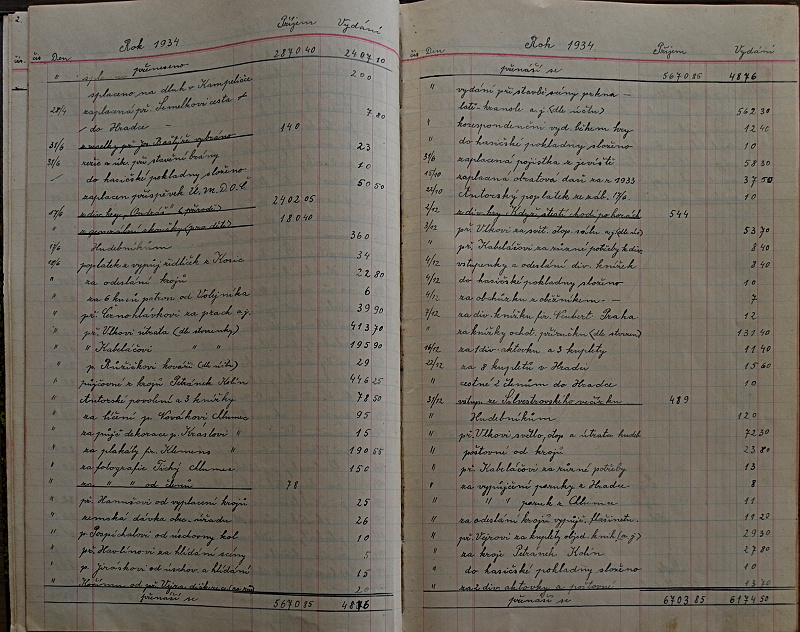 2.
Rok 1934
Příjem Vydání
čís. čís Den
přineseno 2870 40 2407 10
splaceno na dluh v Kampeličce 200
28/4 zaplacena př. Semelkovi cesta
do Hradce 7.80
z veselky př. Jar. vybráno 140
31/5 režie a úk. při stavění brány 23
31/5 do hasičské pokladny složeno 10
zaplacen příspěvek Ú.M.D.O.Č. 50 50
17/6 z div. hry "(přírodě) 2402 05
" z generální zkoušky (pro děti) 180 40
" Hudebníkům 360
17/6 poplatek z vypůj. židliček z Kosic 34
19/6 za odeslání krojů 22 80
" za 6 kusů patron od Volejníka 6
" př. Černohlávkovi za prach a j. 39 90
" př. Vlkovi útrata (dle stvrzenky) 413 70
" " Kabeláčovi " " 195 90
" p. Růžičkovi kováři (dle účtu) 29
" půjčovné z krojů Petránek Kolín 446 25
" Autorské povolení a 3 knížky 78 50
" za líčení p. Novákovi Chlumec 95
" za půjč. dekorace p. Královi " 15
" za plakáty fr. Klemens " 190 55
" za fotografie Tichý Chlumec 150
" za " " od členů 78
" př. Hanušovi od vyplacení krojů 25
" zemská dávka obec. úřadu 26
" p. Pospíchalovi od úschovy kol 10
" př. Havlínovi za hlídání scény 5
" p. Jiráskovi od úschov. a hlídání 15
20
přenáší se 5670 85 4876
Rok 1934
Příjem Vydání
čís Den
přenáší se 5670 85 4876
" vydání při stavbě scény prkna —
latě - hranole a j. (dle účtu) 562 30
" korespondenční vyd. během hry 12 40
" do hasičské pokladny složeno 10
31/6 zaplacena pojistka z jeviště 58 30
15/10 zaplacena obratová daň za r. 1933 37 50
22/10 Autorský poplatek ze záb. 17/6. 10
2/12 z div. hry "Když štěstí chodí po horách 544
3/12 př. Vlkovi za svět. otop. sálu a j. (dle úč.) 53 70
" př. Kabeláčovi za různé potřeby k div. 8 40
4/12 vstupenky a odeslání div. knížek 8 40
4/12 do hasičské pokladny složeno 10
4/12 za obchůzku s oběžníkem — 7
7/12 za div. knížku fr. Neubert Praha 12
" za knížky ochot. příručku (dle stvrzen) 131 40
16/12 za 1 div. aktovku a 3 kuplety 11 40
22/12 za 8 kupletů v Hradci 15 60
" cestné 2 členům do Hradce 10
31/12 vstup. ze Silvestrovského večírku 489
" Hudebníkům 120
" př. Vlkovi světlo, otop a útrata hudeb. 72 30
" poštovní od krojů 23 80
" př. Kabeláčovi za různé potřeby 13
" za vypůjčení paruky z Hradce 8
" " " paruk z Chlumce 11
" za odeslání krojů vypůjč. 11 20
" př. Vejrovi za kuplety objed. knih (a j.) 29 30
" za kroje Petránek Kolín 27 80
" do hasičské pokladny složeno 10
" za 2 div. aktovky a poštovné 13 70
přenáší se 6703 85 6174 50